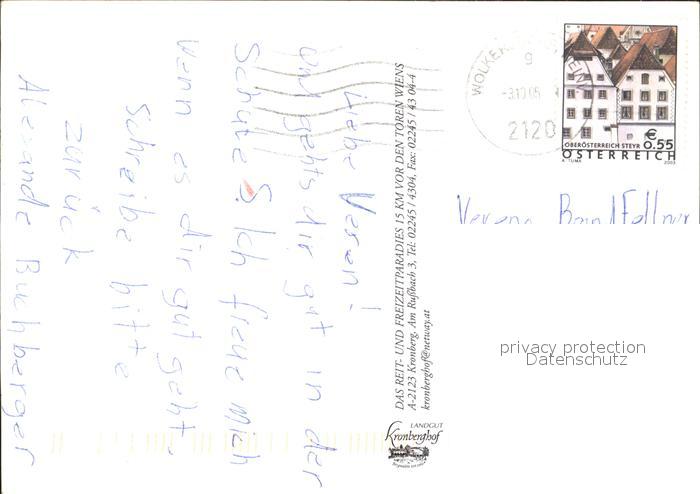 Liebe Veren!
und gehts dir gut in der
Schule S. Ich freue mich
wenn es dir gut geht.
Schreibe bitte
zurück
Alexande Buchberger
DAS REIT- UND FREIZEITPARADIES 15 KM VOR DEN TOREN WIENS
A-2123 Kronberg, Am Rußbach 3, Tel: 02245 / 4304, Fax: 02245 / 43 04-4
kronberghoff@netway.at
LANDGUT
Kronberghof
WOLKER
9
-3.10.05
2120
€
0.55
OBERÖSTERREICH STEYR
ÖSTERREICH
A. TUMA
2003
Verena
privacy protection
Datenschutz